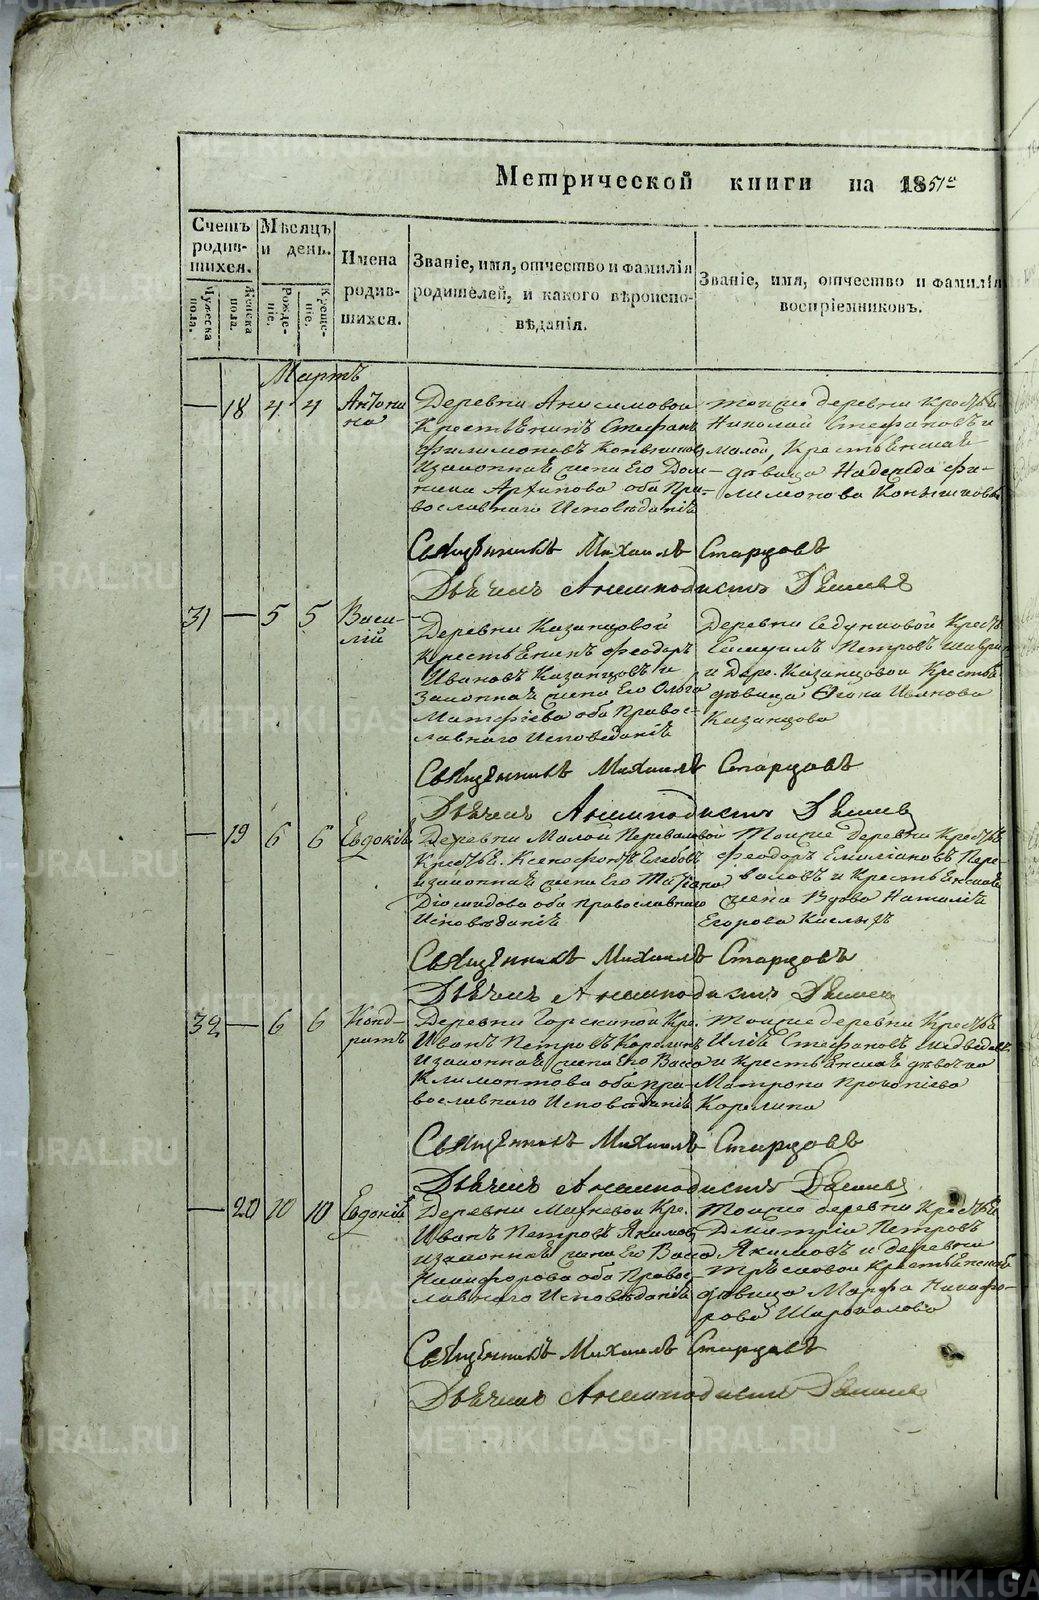 Метрической книги на 1851й
Счетъ родив-шихся.
Мѣсяцъ и день.
Мужеска пола.
Женска пола.
Рожде-ніе.
Креще-ніе.
Имена родив-шихся.
Званіе, имя, отчество и фамилія
родителей, и какого вѣроиспо-
вѣданія.
Званіе, имя, отчество и фамилія
воспріемниковъ.
Мартъ
— 18 4 4 Антони
на
Деревни Анисимовой
Крестьянинъ Стефанъ
Филимоновъ
и законная жена его Дом-
ника Архипова оба Пра-
вославнаго Исповѣданія
тойже деревни Крестья
Николай Стефановъ и
Крестьянская
дѣвица Надежда Фи-
лимонова
Священникъ Михаилъ Старцовъ
Дьячекъ Анемподистъ
31 — 5 5 Васи-
лій
Деревни Казанцовой
Крестьянинъ Феодоръ
Ивановъ Казанцовъ и
Законная жена его Ольга
Матфіева оба Правос-
лавнаго Исповѣданія
Деревни Крестья
Петровъ
и Дере. Казанцовой Крестья
дѣвица Иванова
Казанцова
Священникъ Михаилъ Старцовъ
Дьячекъ Анемподистъ
— 19 6 6 Евдокія
Деревни Малой Переваловой
Крестья. Ксенофонтъ Глебовъ
и законная жена Его Татіана
Діомидова оба православнаго
Исповѣданія
Тойже деревни Крестья
Феодоръ Емиліановъ Пере-
валовъ и Крестьянская
жена Вдова Наталія
Егорова Кислыхъ
Священникъ Михаилъ Старцовъ
Дьячекъ Анемподистъ
32 — 6 6 Конд-
ратъ
Деревни Горскиной Кре.
Иванъ Петровъ Корелинъ
и законная жена Его Васса
Климонтова оба пра-
вославнаго Исповѣданія
Тойже деревни Крестья
Илія Стефановъ Медведев
и крестьянская дѣвица
Матрона Прокопіева
Корелина
Священникъ Михаилъ Старцовъ
Дьячекъ Анемподистъ
— 20 10 10 Евдокія
Деревни Михневой Кре.
Иванъ Петровъ Якимовъ
и законная жена Его Васса
Никифорова оба Правос-
лавнаго Исповѣданія
Тойже деревни Крестья
Дмитрій Петровъ
Якимовъ и деревни
Крестьянская
дѣвица Марфа Никифо-
рова Широколова
Священникъ Михаилъ Старцовъ
Дьячекъ Анемподистъ
METRIKI.GASO-URAL.RU